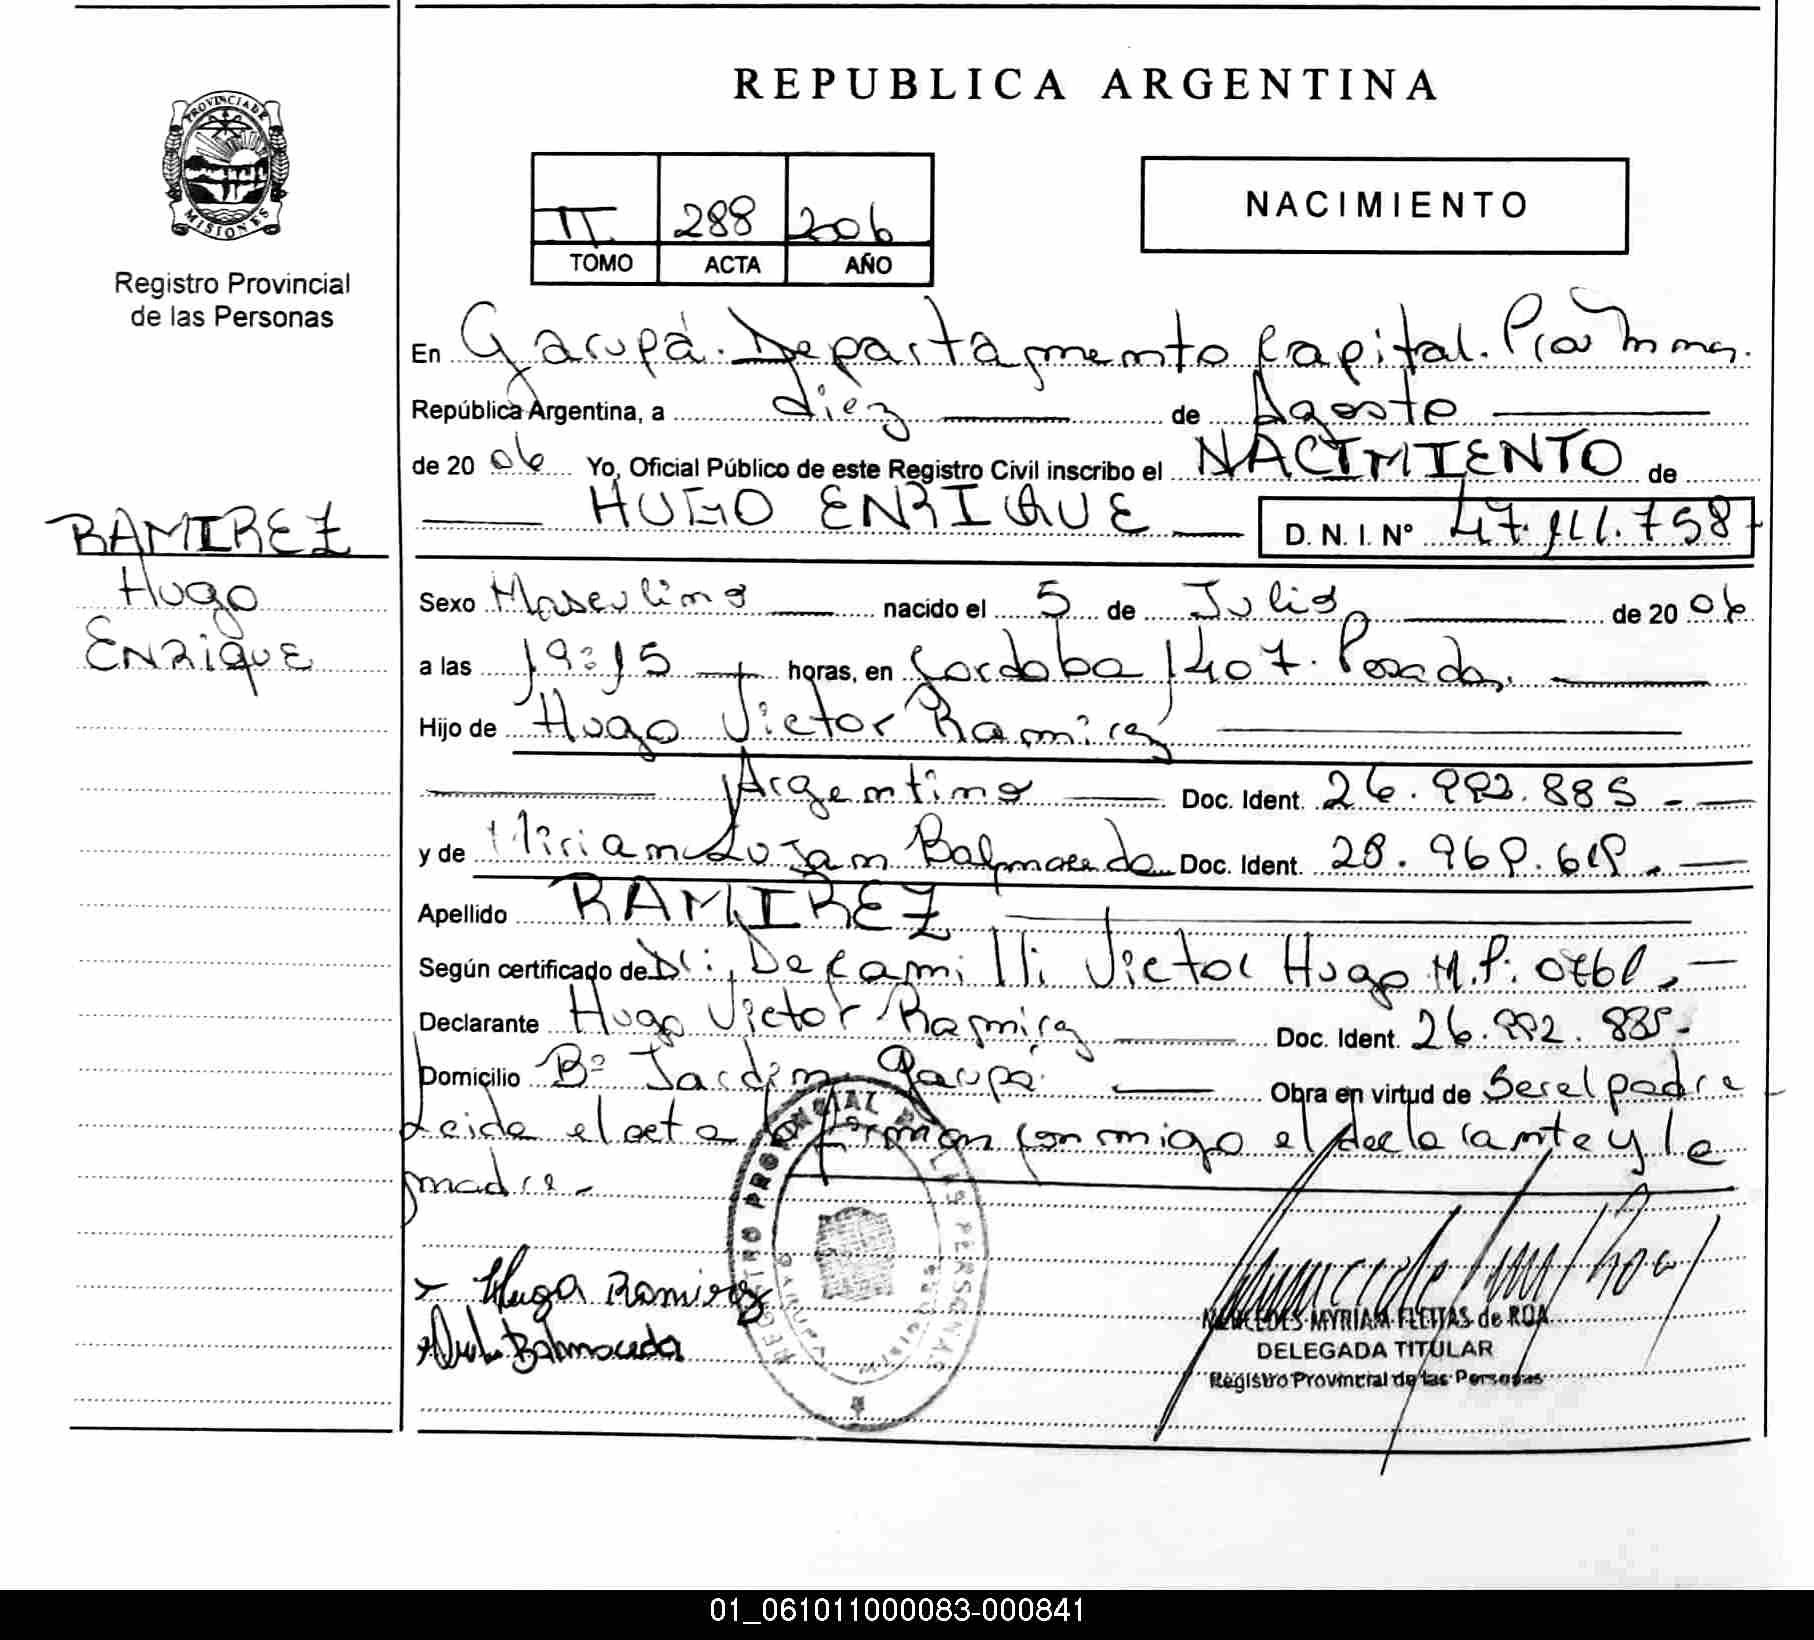 REPUBLICA ARGENTINA
PROVINCIA DE MISIONES
Registro Provincial
de las Personas
II. 288 2006
TOMO ACTA AÑO
NACIMIENTO
En Garupá. Departamento Capital.
República Argentina, a diez de Agosto
de 20 06 Yo, Oficial Público de este Registro Civil inscribo el NACIMIENTO de
HUGO ENRIQUE D. N. I. Nº
RAMIREZ
Hugo
Enrique
Sexo Masculino nacido el 5 de Julio de 20 06
a las 19:15 horas, en Cordoba 1407. Posadas.
Hijo de Hugo Victor Ramirez
Argentino Doc. Ident. 26.992.885.-
y de Miriam Lujan Balmaceda Doc. Ident.
Apellido RAMIREZ
Según certificado de Dr: Decamilli Victor Hugo M.P:
Declarante Hugo Victor Ramirez Doc. Ident. 26.992.885.-
Domicilio Bº Jardin. Garupá Obra en virtud de Ser el padre
Leida el acta la firman conmigo el declarante y la
madre.-
REGISTRO PROVINCIAL DE LAS PERSONAS
Hugo Ramirez
Balmaceda
MERCEDES MYRIAM FLEITAS de ROA
DELEGADA TITULAR
Registro Provincial de las Personas
01_061011000083-000841